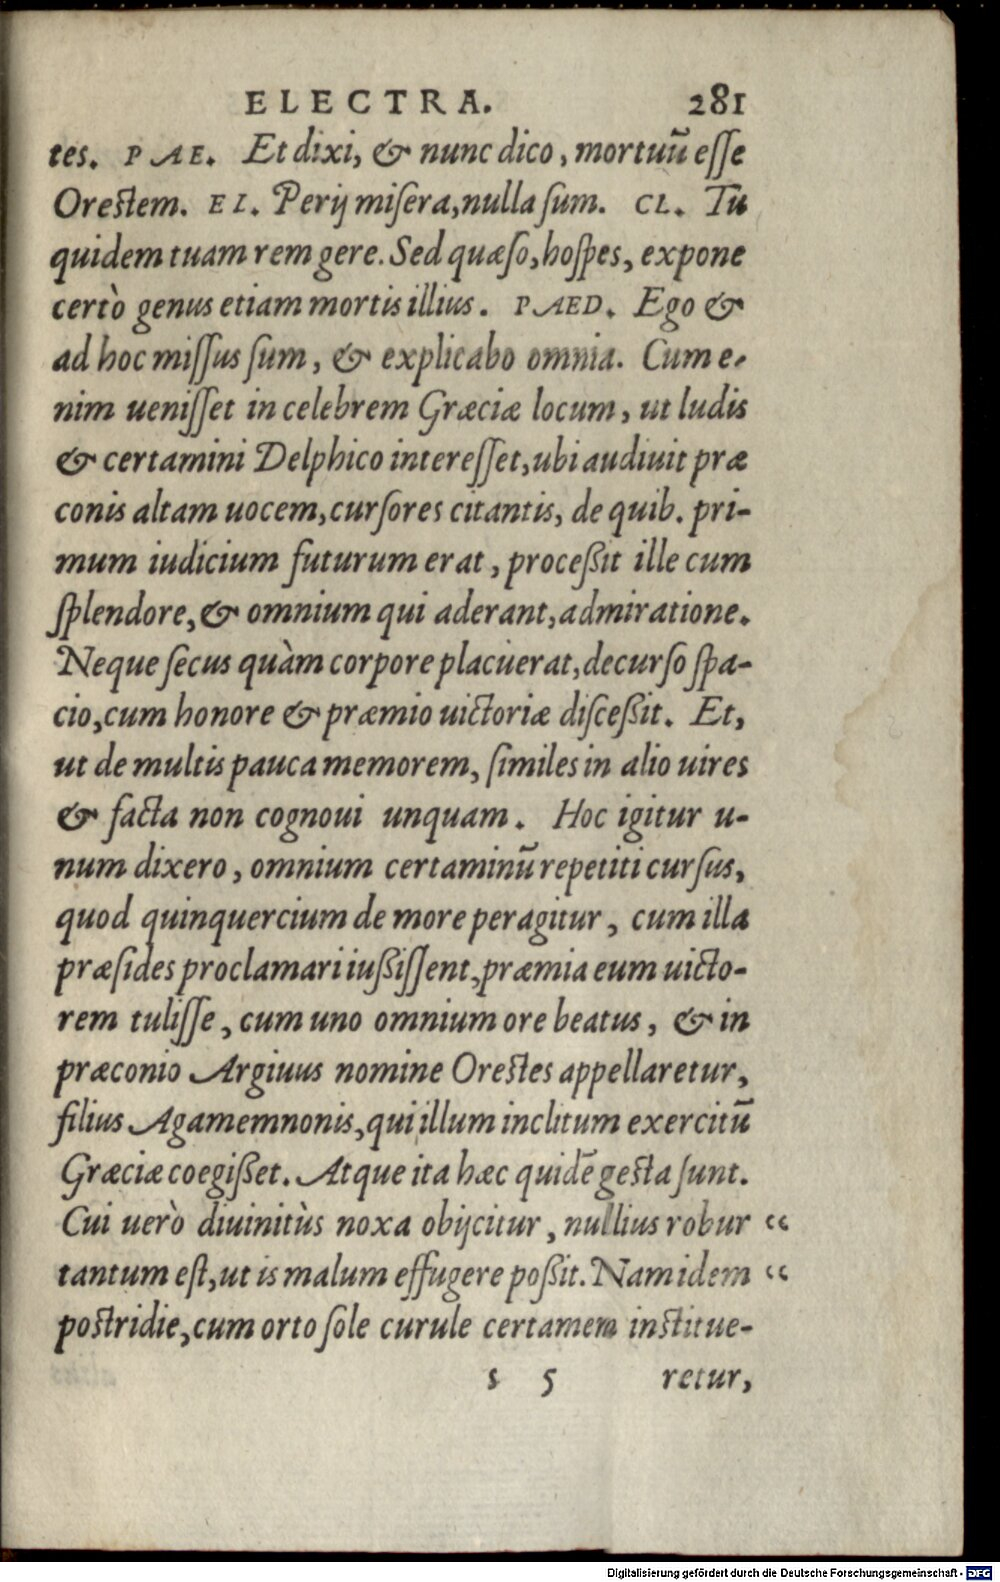 ELECTRA. 281
tes. PAE. Et dixi, & nunc dico, mortuū esse
Orestem. EL. Perij misera, nulla sum. CL. Tu
quidem tuam rem gere. Sed quæso, hospes, expone
certò genus etiam mortis illius. PAED. Ego &
ad hoc missus sum, & explicabo omnia. Cum e-
nim uenisset in celebrem Græciæ locum, ut ludis
& certamini Delphico interesset, ubi audiuit præ
conis altam uocem, cursores citantis, de quib. pri-
mum iudicium futurum erat, proceßit ille cum
splendore, & omnium qui aderant, admiratione.
Neque secus quàm corpore placuerat, decurso spa-
cio, cum honore & præmio uictoriæ disceßit. Et,
ut de multis pauca memorem, similes in alio uires
& facta non cognoui unquam. Hoc igitur u-
num dixero, omnium certaminū repetiti cursus,
quod quinquercium de more peragitur, cum illa
præsides proclamari iußissent, præmia eum uicto-
rem tulisse, cum uno omnium ore beatus, & in
præconio Argiuus nomine Orestes appellaretur,
filius Agamemnonis, qui illum inclitum exercitū
Græciæ coegißet. Atque ita hæc quidē gesta sunt.
Cui uerò diuinitùs noxa obijcitur, nullius robur “
tantum est, ut is malum effugere poßit. Nam idem “
postridie, cum orto sole curule certamen institue-
s 5 retur,
Digitalisierung gefördert durch die Deutsche Forschungsgemeinschaft - DFG